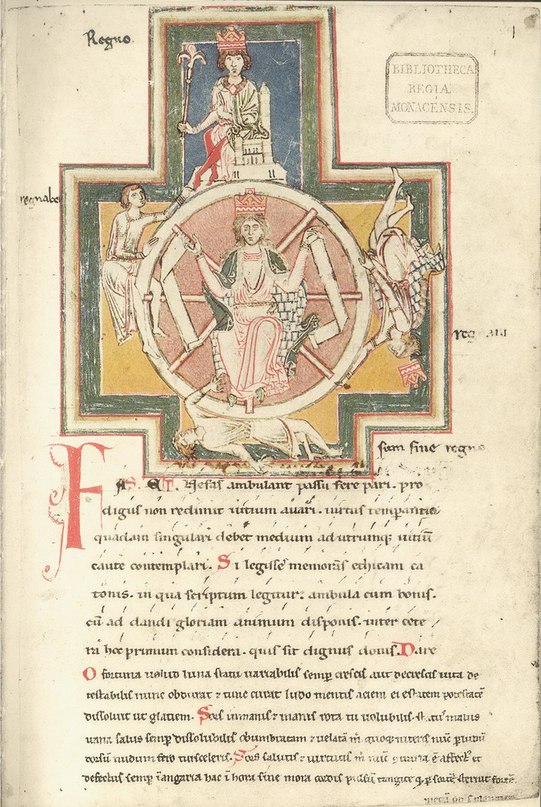 Regno
1
BIBLIOTHECA
REGIA
MONACENSIS.
regnabo
regnaui
sum sine regno
FAS. ET. Nefas ambulant passu fere pari. pro
digus non redimit uitium auari. uirtus temperantia
quadam singulari debet medium ad utrumq; uitiū
caute contemplari. Si legisse memoras ethicam ca
tonis. in qua scriptum legitur. ambula cum bonis.
cū ad dandi gloriam animum disponis. inter cete
ra hoc primum considera. quis sit dignus donis. Dare
O fortuna uelud luna statu uariabilis semp crescis aut decrescis uita de
testabilis nunc obdurat & tunc curat ludo mentis aciem egestatem potestatē
dissoluit ut glatiem. Sors inmanis & inanis rota tu uolubilis status malus
uana salus semp dissolubilis obumbratam & uelatā m quoq; niteris nūc p ludū
dorsū nudum fero tui sceleris. Sors salutis & uirtutis m nūc 9traria ē affect et
defectus semp ī angaria hac ī hora sine mora corde pulsū tangite q p sortē sternit fortē